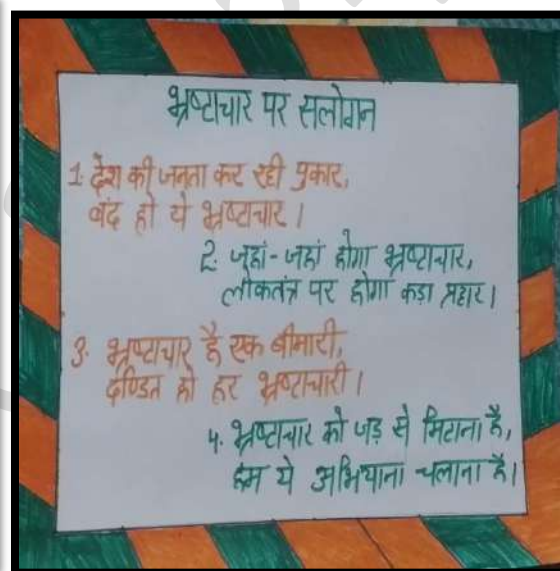 भ्रष्टाचार पर सलोगन
1. देश की जनता कर रही पुकार,
बंद हो ये भ्रष्टाचार।
2. जहां-जहां होगा भ्रष्टाचार,
लोकतंत्र पर होगा कड़ा प्रहार।
3. भ्रष्टाचार है एक बीमारी,
दण्डित हो हर भ्रष्टाचारी।
4. भ्रष्टाचार को जड़ से मिटाना है,
हम ये अभियाना चलाना है।